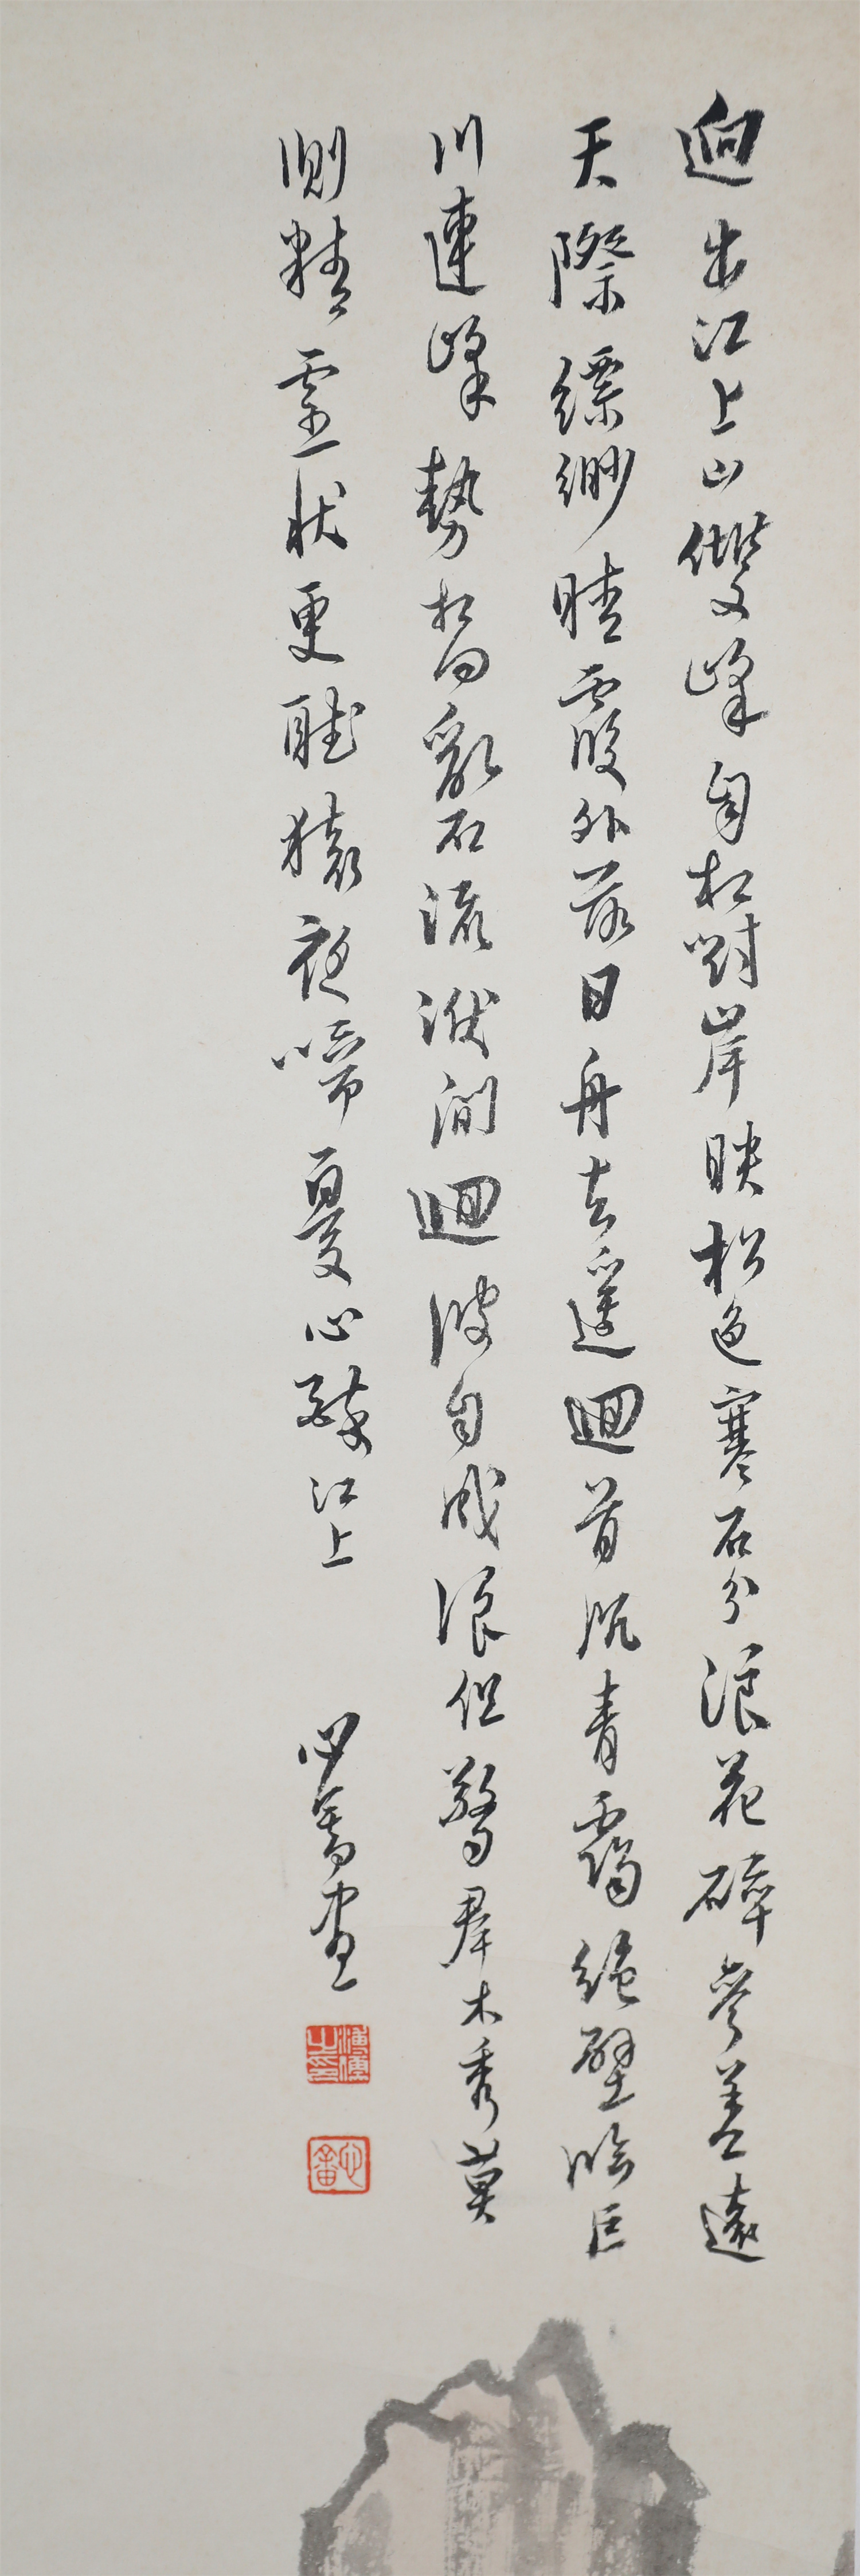 迥出江上山雙峰自相對岸映松色寒石分浪花碎參差遠
天際縹緲晴霞外落日舟去遙迴首沉青靄絕壁臨巨
川連峰勢相向亂石流洑間迴波自成浪但驚羣木秀莫
測精靈狀更聽猿夜啼憂心醉江上
心畬畫
溥儒之印
心畬